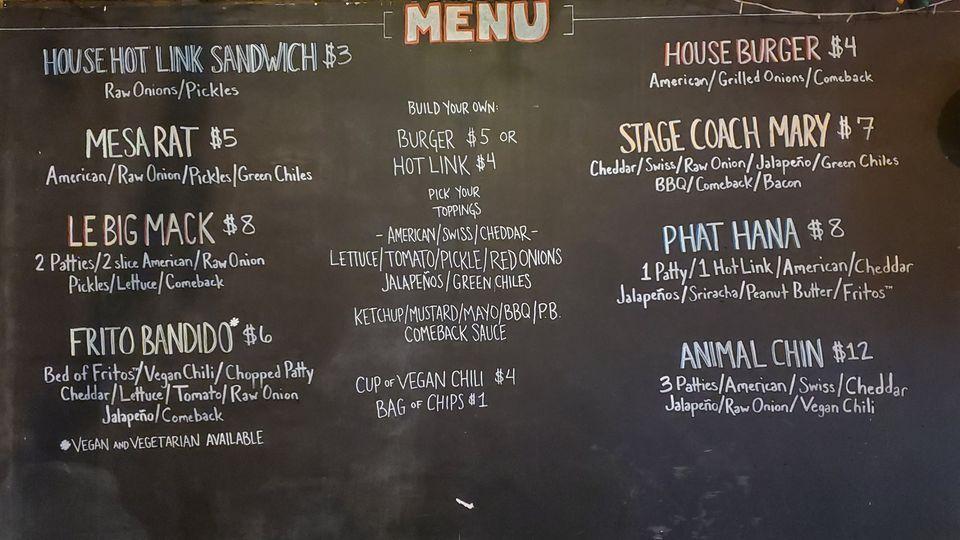 MENU
HOUSE HOT LINK SANDWICH $3
Raw Onions/Pickles
MESA RAT $5
American/Raw Onion/Pickles/Green Chiles
LE BIG MACK $8
2 Patties/2 slice American/Raw Onion
Pickles/Lettuce/Comeback
FRITO BANDIDO* $6
Bed of Fritos™/Vegan Chili/Chopped Patty
Cheddar/Lettuce/Tomato/Raw Onion
Jalapeño/Comeback
*VEGAN AND VEGETARIAN AVAILABLE
BUILD YOUR OWN:
BURGER $5 OR
HOT LINK $4
PICK YOUR
TOPPINGS
- AMERICAN/SWISS/CHEDDAR -
LETTUCE/TOMATO/PICKLE/RED ONIONS
JALAPEÑOS/GREEN CHILES
KETCHUP/MUSTARD/MAYO/BBQ/P.B.
COMEBACK SAUCE
CUP OF VEGAN CHILI $4
BAG OF CHIPS $1
HOUSE BURGER $4
American/Grilled Onions/Comeback
STAGE COACH MARY $7
Cheddar/Swiss/Raw Onion/Jalapeño/Green Chiles
BBQ/Comeback/Bacon
PHAT HANA $8
1 Patty/1 Hot Link/American/Cheddar
Jalapeños/Sriracha/Peanut Butter/Fritos™
ANIMAL CHIN $12
3 Patties/American/Swiss/Cheddar
Jalapeño/Raw Onion/Vegan Chili